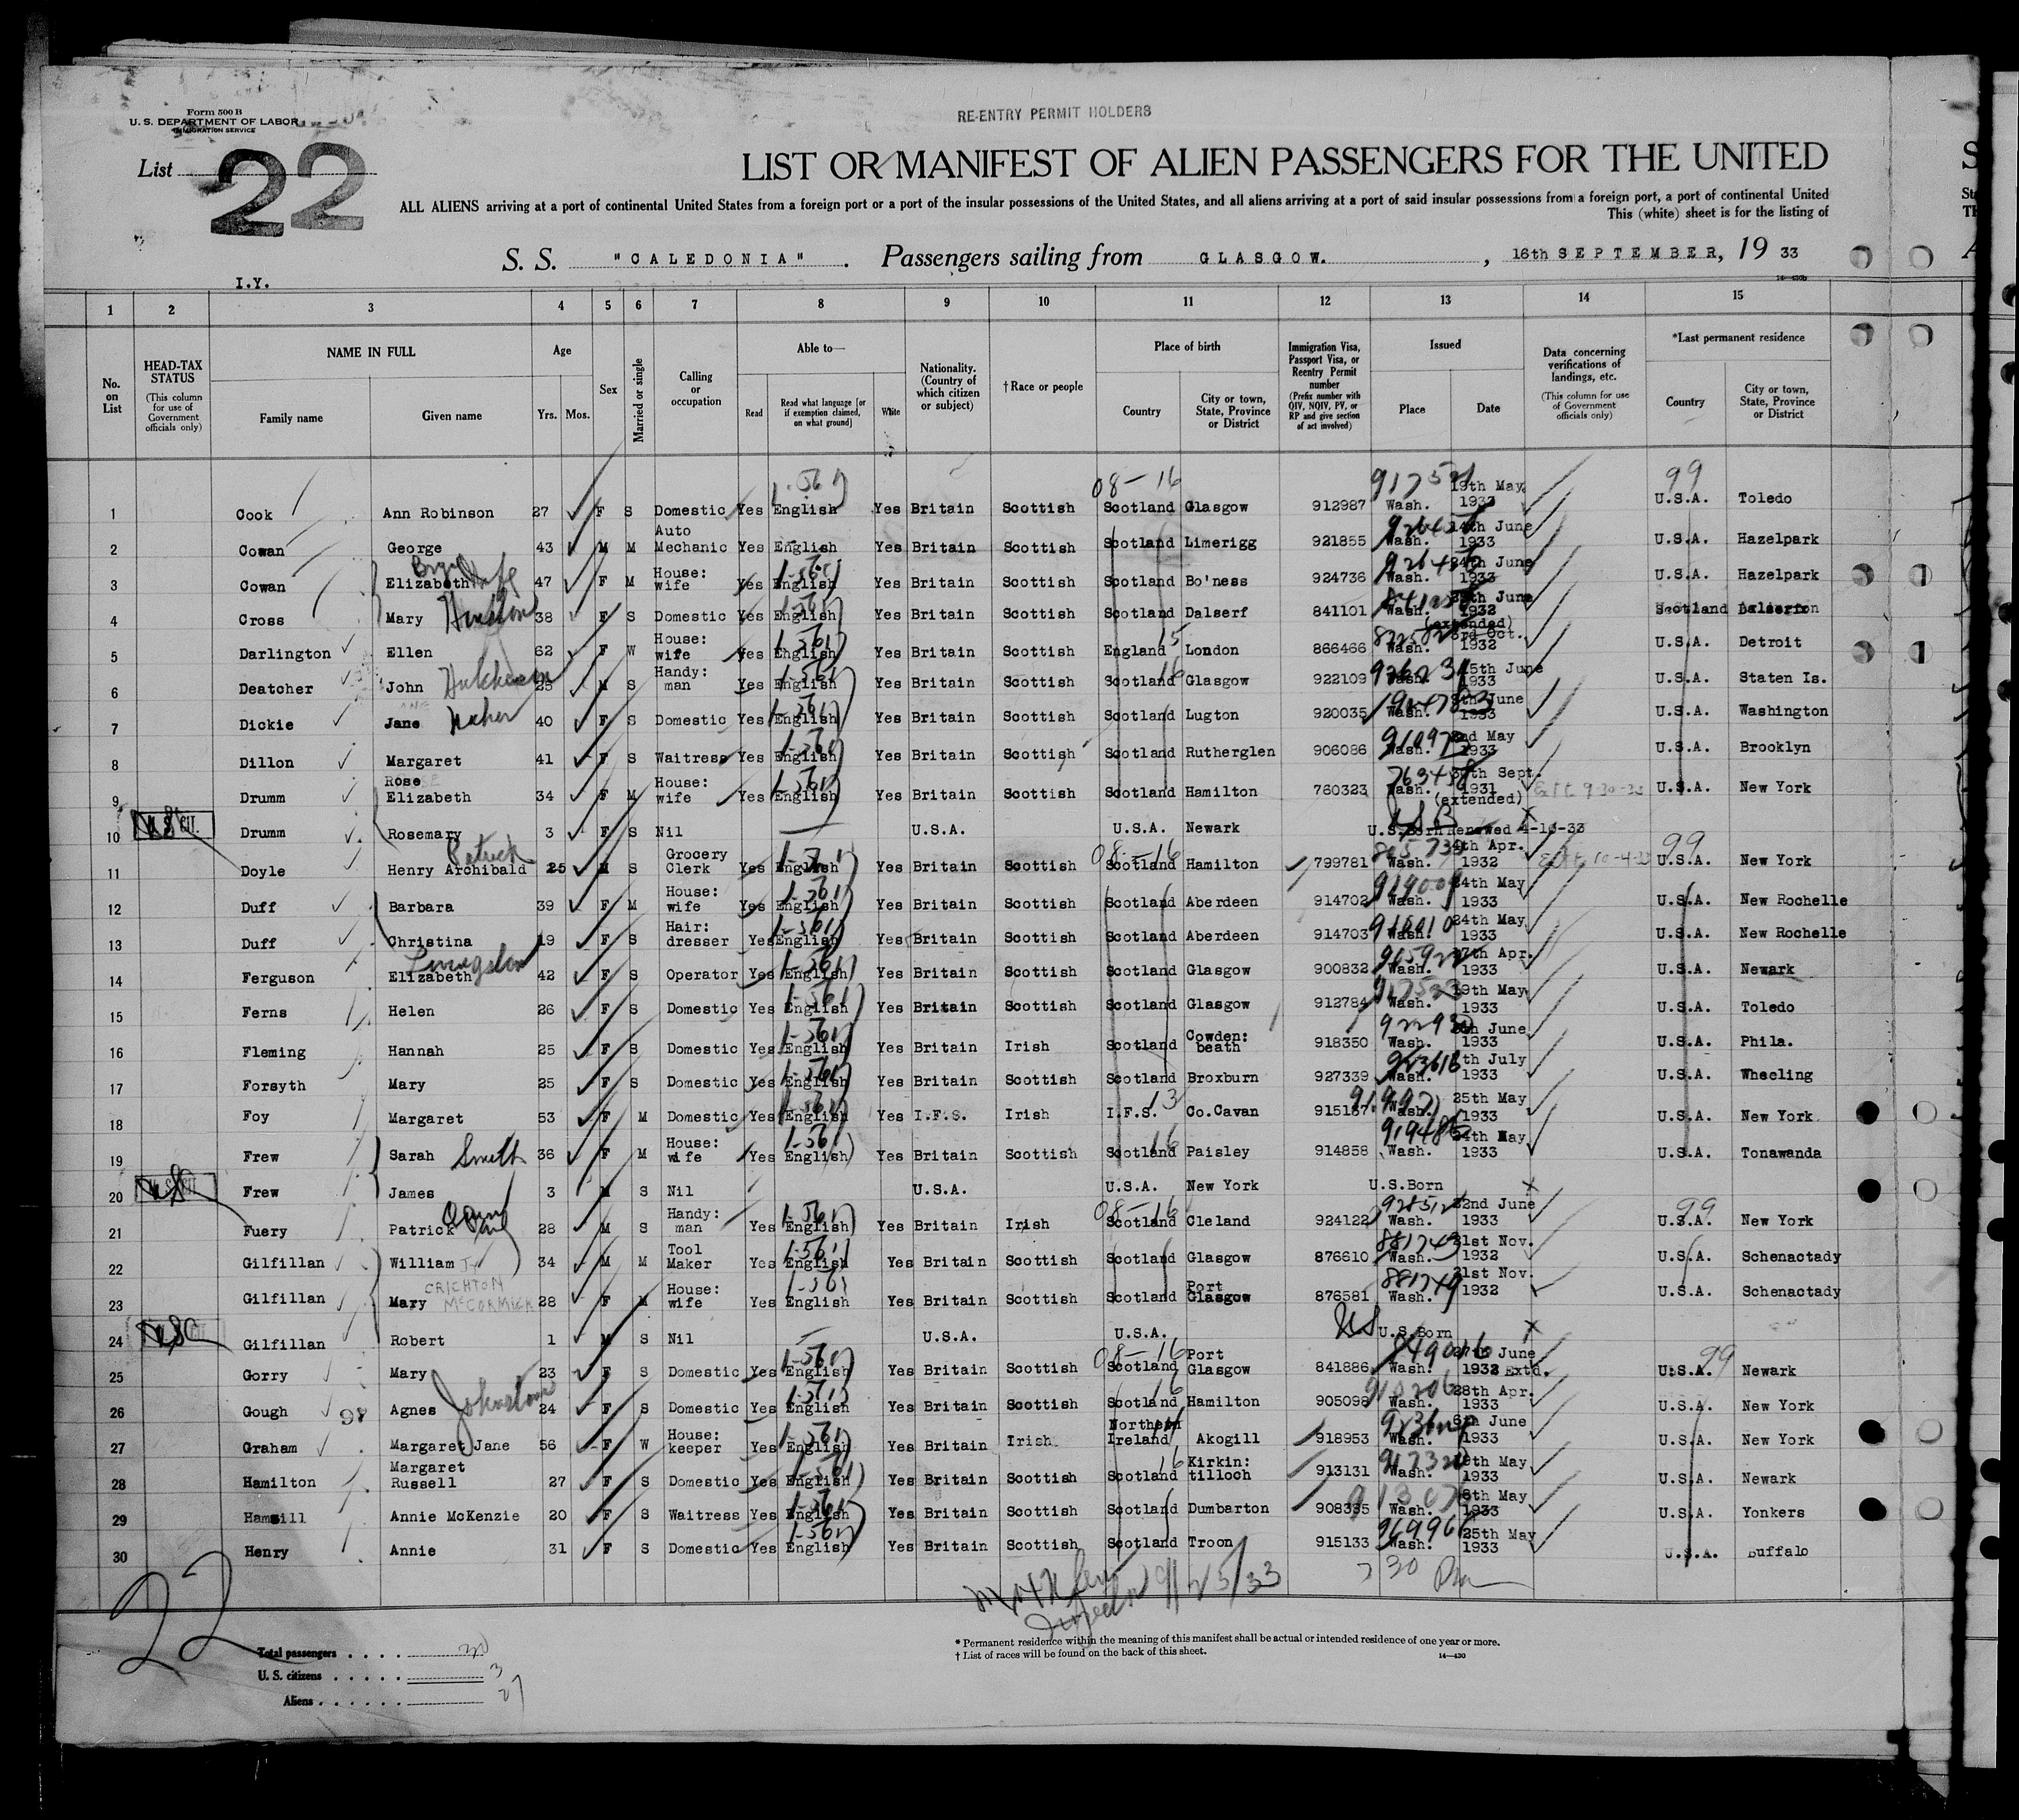 Form 500 B
U. S. DEPARTMENT OF LABOR
IMMIGRATION SERVICE
RE-ENTRY PERMIT HOLDERS
List 22
LIST OR MANIFEST OF ALIEN PASSENGERS FOR THE UNITED
ALL ALIENS arriving at a port of continental United States from a foreign port or a port of the insular possessions of the United States, and all aliens arriving at a port of said insular possessions from a foreign port, a port of continental United
This (white) sheet is for the listing of
S. S. "CALEDONIA". Passengers sailing from GLASGOW., 16th SEPTEMBER, 19 33
14-430b
I.Y.
1 2 3 4 5 6 7 8 9 10 11 12 13 14 15
No. on List
HEAD-TAX STATUS
(This column for use of Government officials only)
NAME IN FULL
Family name
Given name
Age
Yrs. Mos.
Sex
Married or single
Calling or occupation
Able to—
Read
Read what language [or if exemption claimed, on what ground]
Write
Nationality. (Country of which citizen or subject)
†Race or people
Place of birth
Country
City or town, State, Province or District
Immigration Visa, Passport Visa, or Reentry Permit number
(Prefix number with QIV, NQIV, PV, or RP and give section of act involved)
Issued
Place
Date
Data concerning verifications of landings, etc.
(This column for use of Government officials only)
*Last permanent residence
Country
City or town, State, Province or District
08-16 99
1 Cook Ann Robinson 27 F S Domestic Yes English Yes Britain Scottish Scotland Glasgow 912987 Wash. 19th May 1933 U.S.A. Toledo
2 Cowan George 43 M M Auto Mechanic Yes English Yes Britain Scottish Scotland Limerigg 921855 Wash. 14th June 1933 U.S.A. Hazelpark
3 Cowan Elizabeth 47 F M House: wife Yes English Yes Britain Scottish Scotland Bo'ness 924736 Wash. 24th June 1933 U.S.A. Hazelpark
4 Cross Mary 38 F S Domestic Yes English Yes Britain Scottish Scotland Dalserf 841101 Wash. June 1932 (extended) Scotland
5 Darlington Ellen 62 F W House: wife Yes English Yes Britain Scottish England London 866466 Wash. 3rd Oct. 1932 U.S.A. Detroit
6 Deatcher John 25 M S Handy: man Yes English Yes Britain Scottish Scotland Glasgow 922109 Wash. 15th June 1933 U.S.A. Staten Is.
7 Dickie Jane 40 F S Domestic Yes English Yes Britain Scottish Scotland Lugton 920035 Wash. June 1933 U.S.A. Washington
8 Dillon Margaret 41 F S Waitress Yes English Yes Britain Scottish Scotland Rutherglen 906086 Wash. 2nd May 1933 U.S.A. Brooklyn
9 Drumm Rose Elizabeth 34 F M House: wife Yes English Yes Britain Scottish Scotland Hamilton 760323 Wash. 30th Sept. 1931 (extended) U.S.A. New York
10 Drumm Rosemary 3 F S Nil U.S.A. U.S.A. Newark U.S.Born Renewed 4-10-33
11 Doyle Henry Archibald Patrick 25 M S Grocery Clerk Yes English Yes Britain Scottish Scotland Hamilton 799781 Wash. 4th Apr. 1932 U.S.A. New York
12 Duff Barbara 39 F M House: wife Yes English Yes Britain Scottish Scotland Aberdeen 914702 Wash. 24th May 1933 U.S.A. New Rochelle
13 Duff Christina 19 F S Hair: dresser Yes English Yes Britain Scottish Scotland Aberdeen 914703 Wash. 24th May 1933 U.S.A. New Rochelle
14 Ferguson Elizabeth Livingston 42 F S Operator Yes English Yes Britain Scottish Scotland Glasgow 900832 Wash. 17th Apr. 1933 U.S.A. Newark
15 Ferns Helen 26 F S Domestic Yes English Yes Britain Scottish Scotland Glasgow 912784 Wash. 19th May 1933 U.S.A. Toledo
16 Fleming Hannah 25 F S Domestic Yes English Yes Britain Irish Scotland Cowden: beath 918350 Wash. June 1933 U.S.A. Phila.
17 Forsyth Mary 25 F S Domestic Yes English Yes Britain Scottish Scotland Broxburn 927339 Wash. July 1933 U.S.A. Wheeling
18 Foy Margaret 53 F M Domestic Yes English Yes I.F.S. Irish I.F.S. Co.Cavan 915167 Wash. 25th May 1933 U.S.A. New York
19 Frew Sarah Smith 36 F M House: wife Yes English Yes Britain Scottish Scotland Paisley 914858 Wash. 24th May 1933 U.S.A. Tonawanda
20 Frew James 3 M S Nil U.S.A. U.S.A. New York U.S.Born
21 Fuery Patrick 28 M S Handy: man Yes English Yes Britain Irish Scotland Cleland 924122 Wash. 22nd June 1933 U.S.A. New York
22 Gilfillan William 34 M M Tool Maker Yes English Yes Britain Scottish Scotland Glasgow 876610 Wash. 21st Nov. 1932 U.S.A. Schenactady
23 Gilfillan Mary CRICHTON McCORMICK 28 F M House: wife Yes English Yes Britain Scottish Scotland Port Glasgow 876581 Wash. 21st Nov. 1932 U.S.A. Schenactady
24 Gilfillan Robert 1 M S Nil U.S.A. U.S.A. U.S.Born
25 Gorry Mary 23 F S Domestic Yes English Yes Britain Scottish Scotland Port Glasgow 841886 Wash. June 1932 Extd. U.S.A. Newark
26 Gough Agnes Johnstone 24 F S Domestic Yes English Yes Britain Scottish Scotland Hamilton 905098 Wash. 28th Apr. 1933 U.S.A. New York
27 Graham Margaret Jane 56 F W House: keeper Yes English Yes Britain Irish Northern Ireland Akogill 918953 Wash. 6th June 1933 U.S.A. New York
28 Hamilton Margaret Russell 27 F S Domestic Yes English Yes Britain Scottish Scotland Kirkin: tilloch 913131 Wash. 19th May 1933 U.S.A. Newark
29 Hamsill Annie McKenzie 20 F S Waitress Yes English Yes Britain Scottish Scotland Dumbarton 908395 Wash. 8th May 1933 U.S.A. Yonkers
30 Henry Annie 31 F S Domestic Yes English Yes Britain Scottish Scotland Troon 915133 Wash. 25th May 1933 U.S.A. Buffalo
22
Total passengers 30
U. S. citizens 3
Aliens 27
* Permanent residence within the meaning of this manifest shall be actual or intended residence of one year or more.
† List of races will be found on the back of this sheet.
14-430